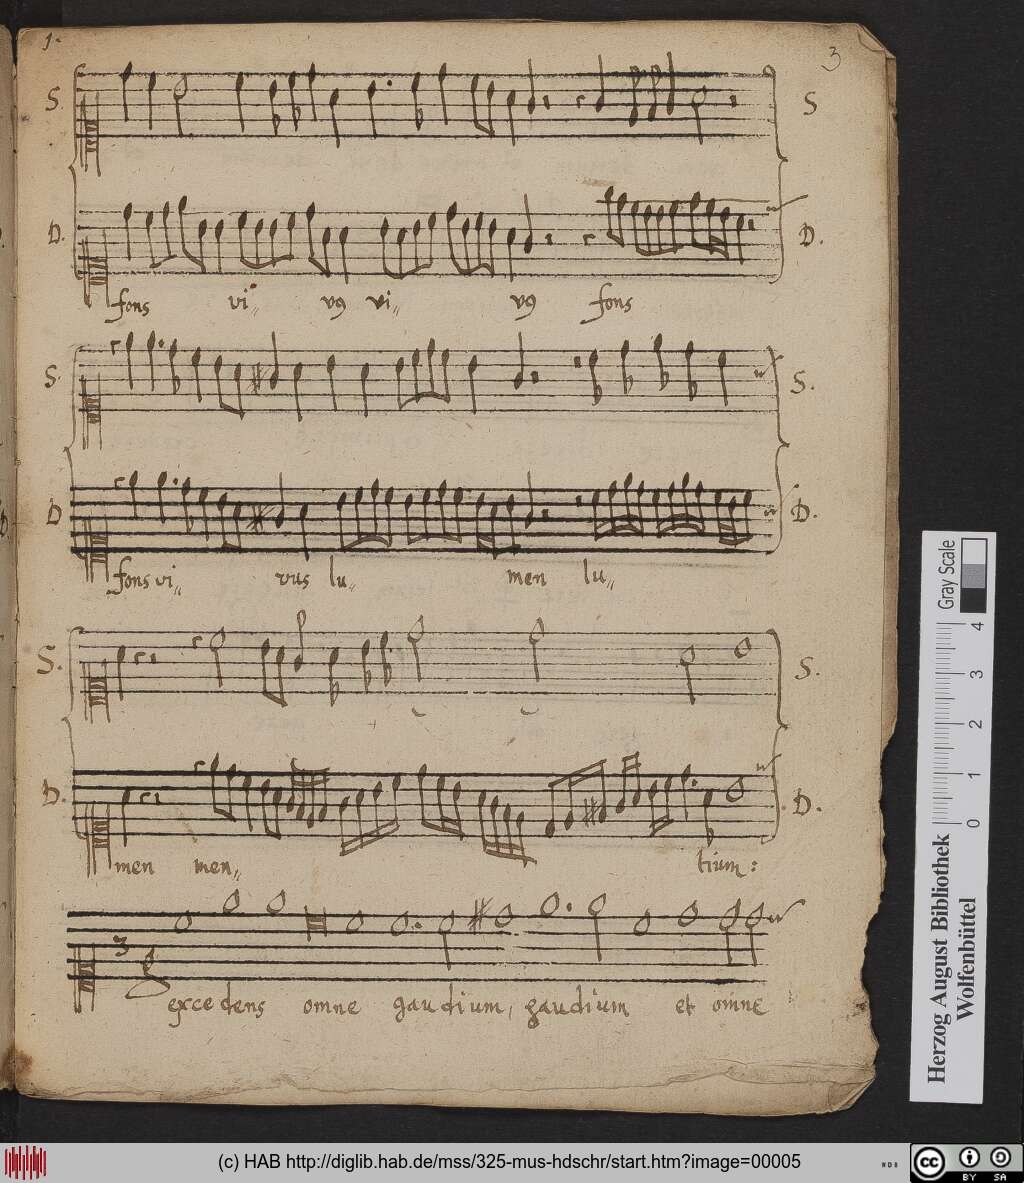 1.
3
S. S
D. D.
fons vi„ v9 vi„ v9 fons
S. S.
D D.
fons vi„ vus lu„ men lu„
S. S.
D. D.
men men„ tium:
3
excedens omne gaudium, gaudium et omne
Gray Scale
0 1 2 3 4
Herzog August Bibliothek
Wolfenbüttel
(c) HAB http://diglib.hab.de/mss/325-mus-hdschr/start.htm?image=00005
WDB
cc BY SA